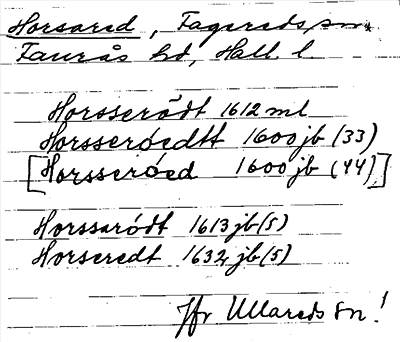 Horsared, Fagereds sn.
Faurås hd, Hall. l.
Horsserödt 1612 ml
Horsseröedtt 1600 jb (33)
[Horsseröed 1600 jb (44)]
Horssarödt 1613 jb (5)
Horseredt 1632 jb (5)
Jfr Ullareds sn!